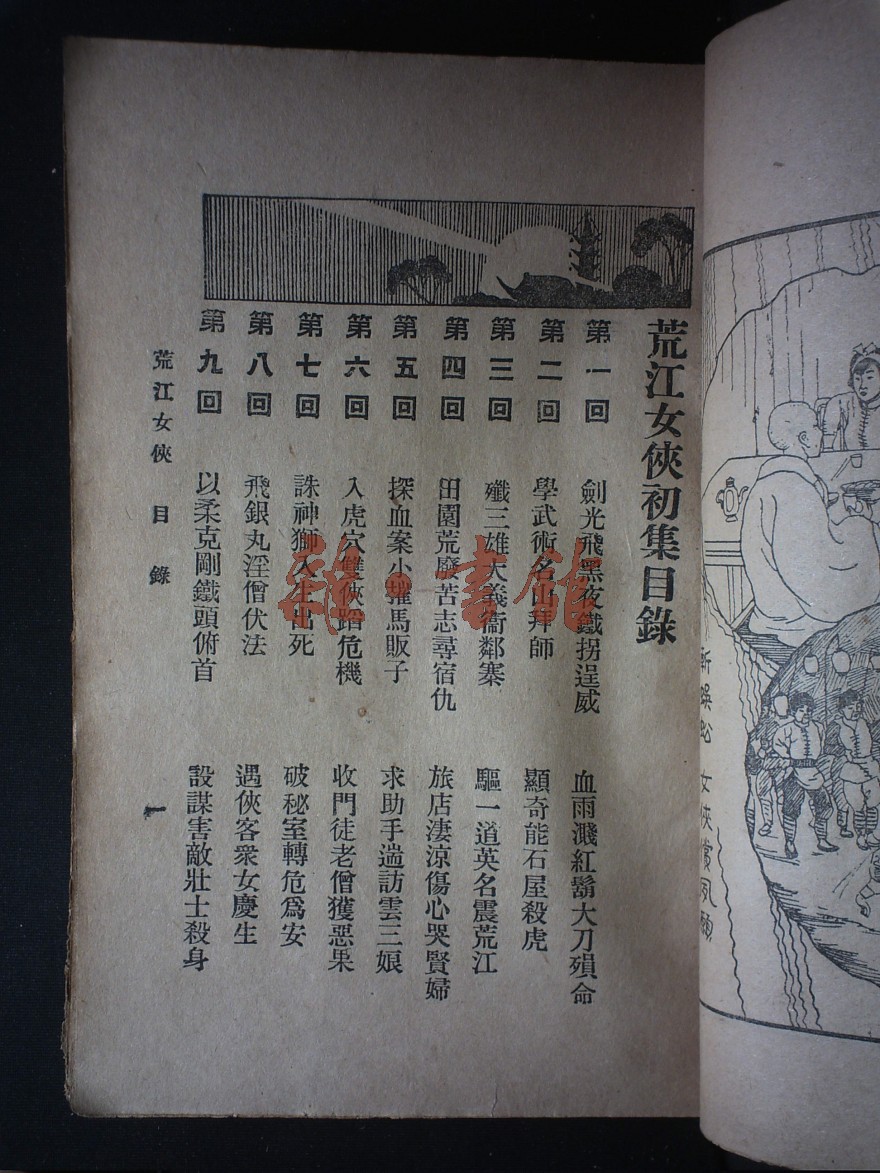 荒江女俠初集目錄
第一回 劍光飛黑夜鐵拐逞威 血雨濺紅鬍大刀殞命
第二回 學武術名山拜師 顯奇能石屋殺虎
第三回 殲三雄大義衞鄰寨 驅一道英名震荒江
第四回 田園荒廢苦志尋宿仇 旅店淒涼傷心哭賢婦
第五回 探血案小摧馬販子 求助手遄訪雲三娘
第六回 入虎穴雙俠蹈危機 收門徒老僧獲惡果
第七回 誅神獅入生出死 破秘室轉危爲安
第八回 飛銀丸淫僧伏法 遇俠客衆女慶生
第九回 以柔克剛鐵頭俯首 設謀害敵壯士殺身
荒江女俠 目錄 一
斬蜈蚣 女俠償夙願
雜·書館